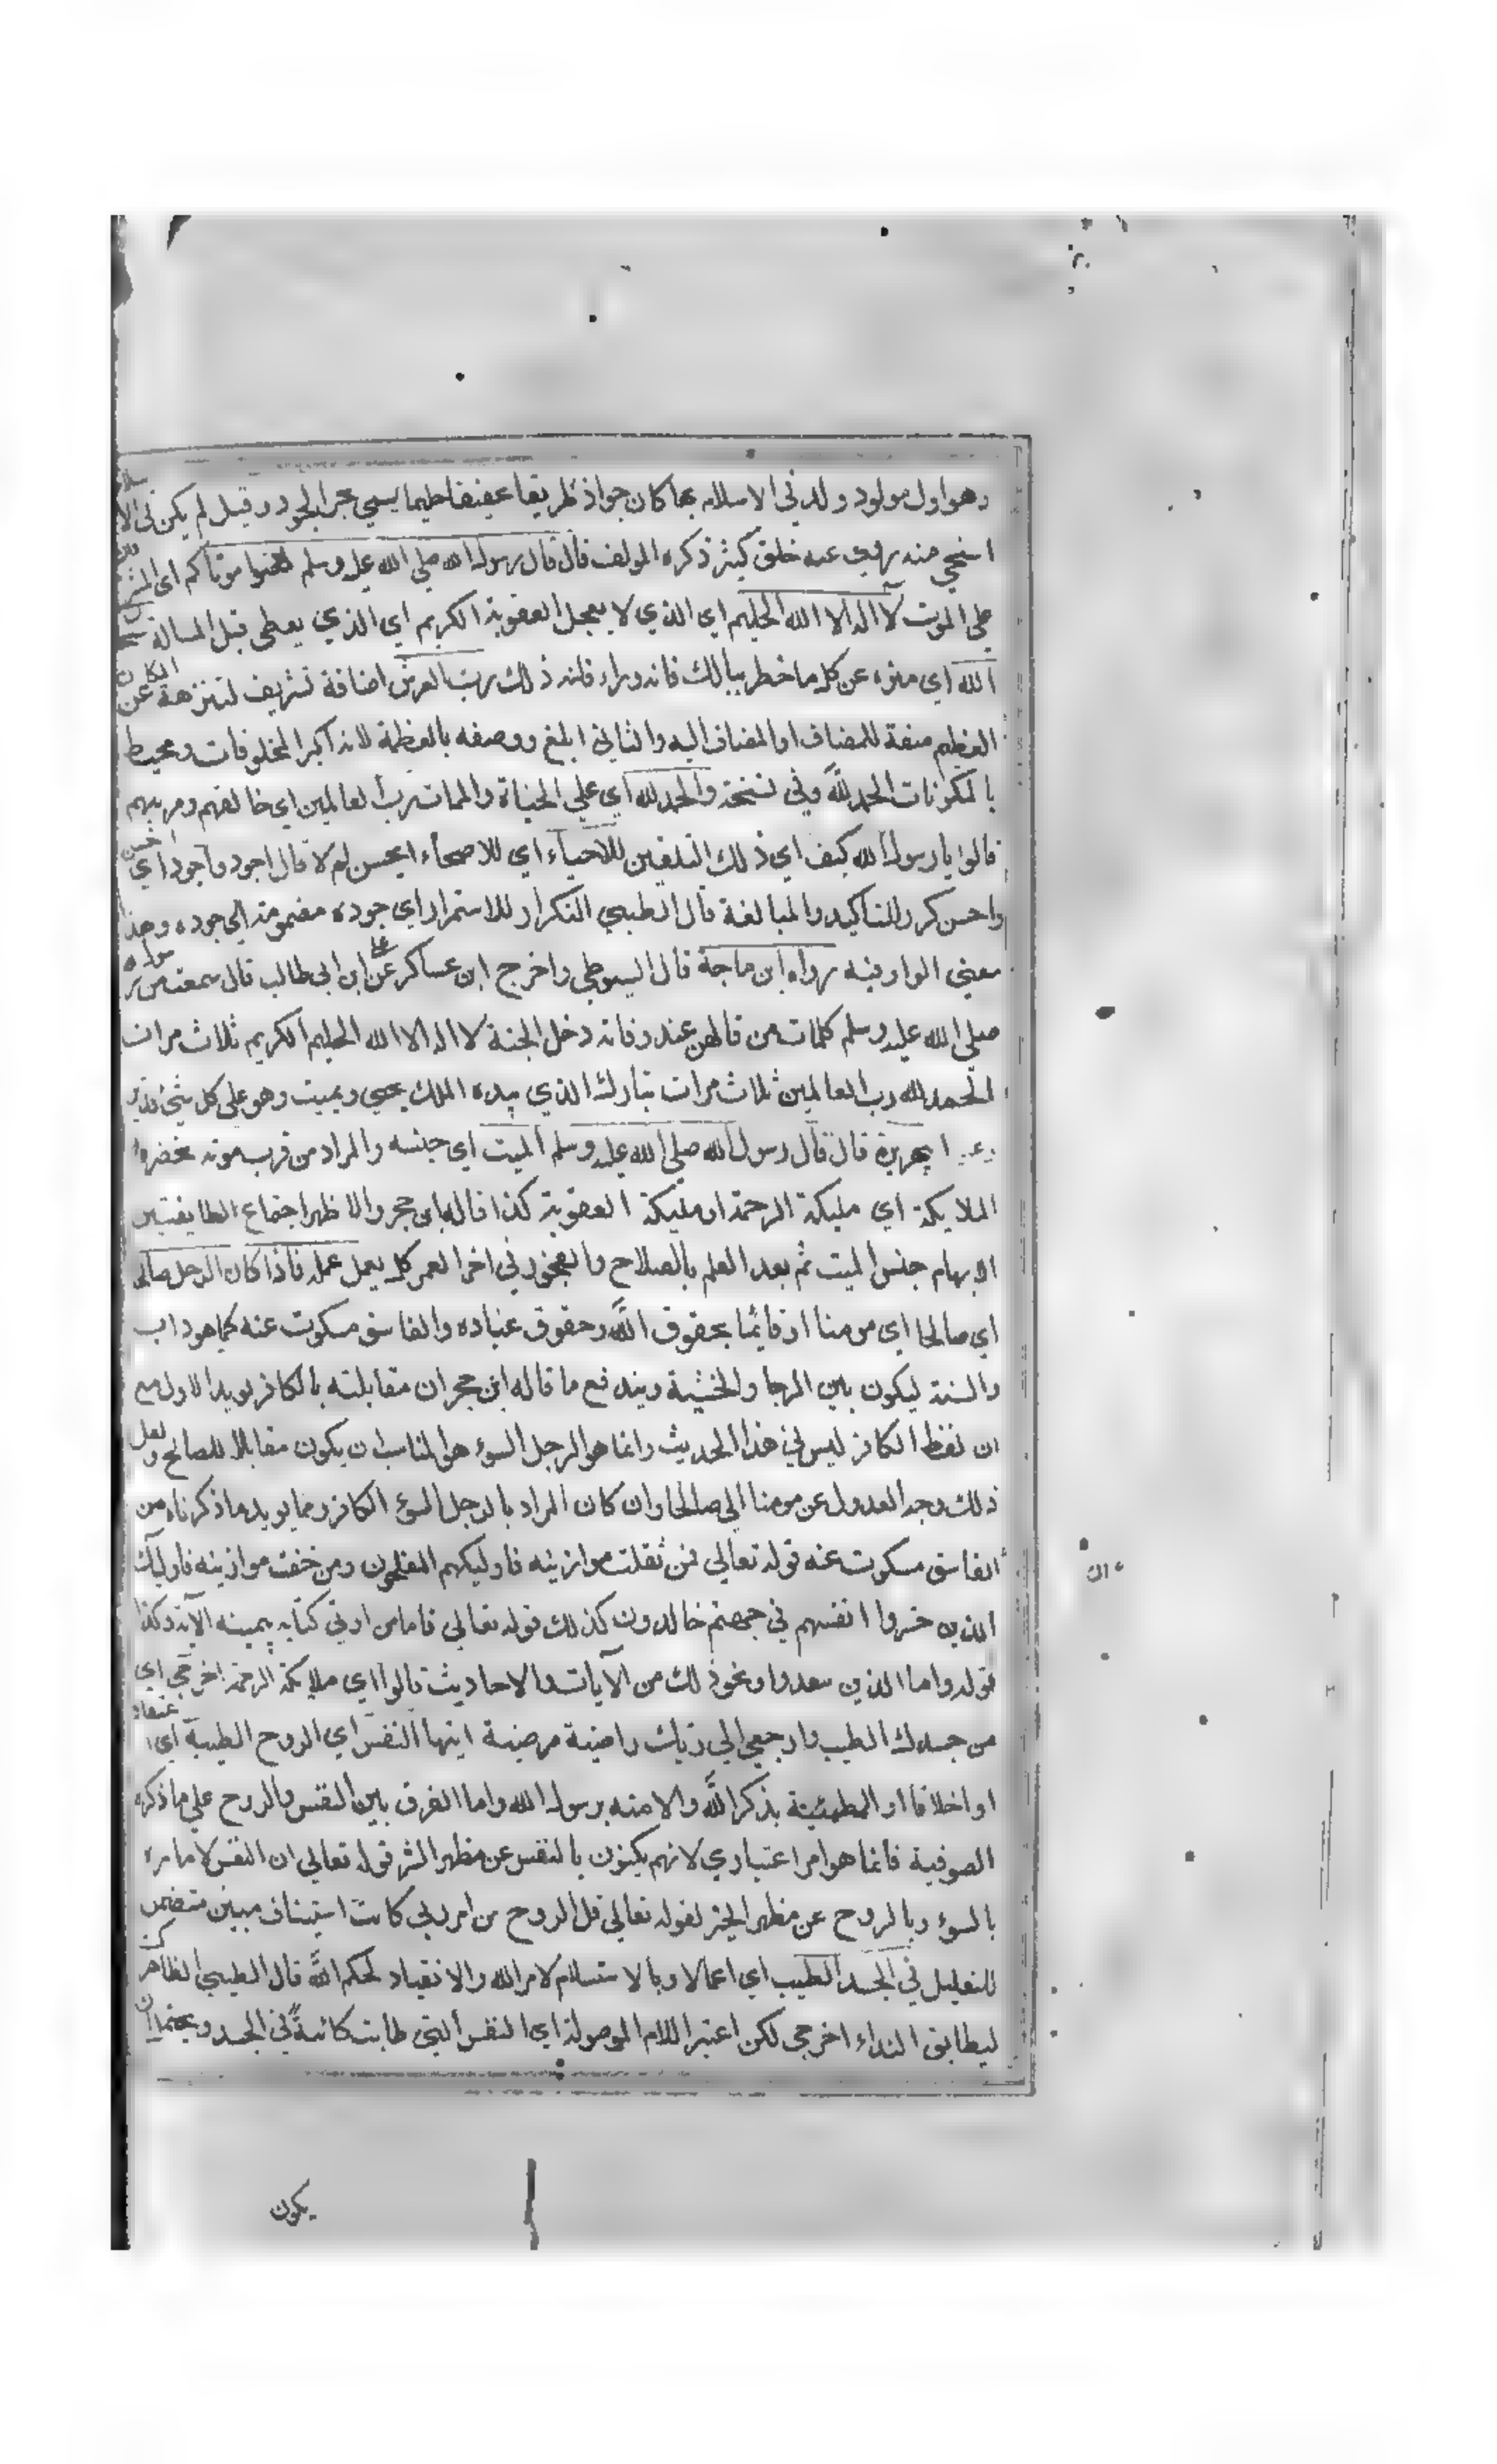 وهو اول مولود ولد في الاسلام بها كان جوادا ظريفا عفيفا حليما يسمي بحر الجود وقيل لم يكن في الاسلام
اسخي منه روي عنه خلق كثير ذكره المولف قال قال رسول الله صلي الله عليه وسلم لقنوا موتاكم اي المشرفين
علي الموت لا اله الا الله الحليم اي الذي لا يعجل العقوبة الكريم اي الذي يعطي قبل المسالة سبحان
الله اي منزه عن كل ما خطر ببالك فانه وراء ذلك رب العرش اضافة تشريف لتنزهه عن المكان
العظيم صفة للمضاف او المضاف اليه والثاني ابلغ ووصفه بالعظمة لانه اكبر المخلوقات ومحيط
بالمكونات الحمد لله وفي نسخة والحمد لله اي علي الحياة والممات رب العالمين اي خالقهم ومربيهم
قالوا يا رسول الله كيف اي ذلك التلقين للاحياء اي للاصحاء ايحسن ام لا قال اجود واجود اي احسن
واحسن كرر للتاكيد والمبالغة قال الطيبي التكرار للاستمرار اي جوده مضمومة الي جوده وهذا
معني الواو فيه رواه ابن ماجة قال السيوطي واخرج ابن عساكر عن علي ابن ابي طالب قال سمعت من رسول الله
صلي الله عليه وسلم كلمات من قالهن عند وفاته دخل الجنة لا اله الا الله الحليم الكريم ثلاث مرات
الحمد لله رب العالمين ثلاث مرات تبارك الذي بيده الملك يحيي ويميت وهو علي كل شيء قدير
وعن ابي هريرة قال قال رسول الله صلي الله عليه وسلم الميت اي جنسه والمراد من قرب موته تحضره
الملايكة اي مليكة الرحمة او مليكة العقوبة كذا قاله ابن حجر والاظهر اجتماع الطايفتين
الابهام جنس الميت ثم بعد العلم بالصلاح والفجور في اخر العمر كل يعمل عمله فاذا كان الرجل صالحا
اي صالحا اي مومنا او قايما بحقوق الله وحقوق عباده والفاسق مسكوت عنه كما هو داب
والسنة ليكون بين الرجا والخشية ويندفع ما قاله ابن حجر ان مقابلته بالكافر يويد الاول مع
ان لفظ الكافر ليس في هذا الحديث وانما هو الرجل السوء هو المناسب ان يكون مقابلا للصالح ولعل
ذلك وجه العدول عن مومنا الي صالحا وان كان المراد بالرجل السوء الكافر ومما يويد ما ذكرناه من
الفاسق مسكوت عنه قوله تعالي فمن ثقلت موازينه فاوليك هم المفلحون ومن خفت موازينه فاوليك
الذين خسروا انفسهم في جهنم خالدون كذلك قوله تعالي فاما من اوتي كتابه بيمينه الآية وكذا
قوله واما الذين سعدوا ونحو ذلك من الآيات والاحاديث قالوا اي ملايكة الرحمة اخرجي اي
من جسدك الطيب وارجعي الي ربك راضية مرضية ايتها النفس اي الروح الطيبة اي اعتقادا
او اخلاقا او المطمئنة بذكر الله والامنه برسول الله واما الفرق بين النفس والروح علي ما ذكره
الصوفية فانما هو امر اعتباري لانهم يكنون بالنفس عن مظهر الشر قوله تعالي ان النفس لامارة
بالسوء وبالروح عن مظهر الخير لقوله تعالي قل الروح من امر ربي كانت استيناف مبين متضمن
للتعليل في الجسد الطيب اي اعمالا وبالاستسلام لامر الله والانقياد لحكم الله قال الطيبي الظاهر كنت
ليطابق النداء اخرجي لكن اعتبر اللام الموصولة اي النفس التي طابت كائنة في الجسد ويحتمل ان
يكون